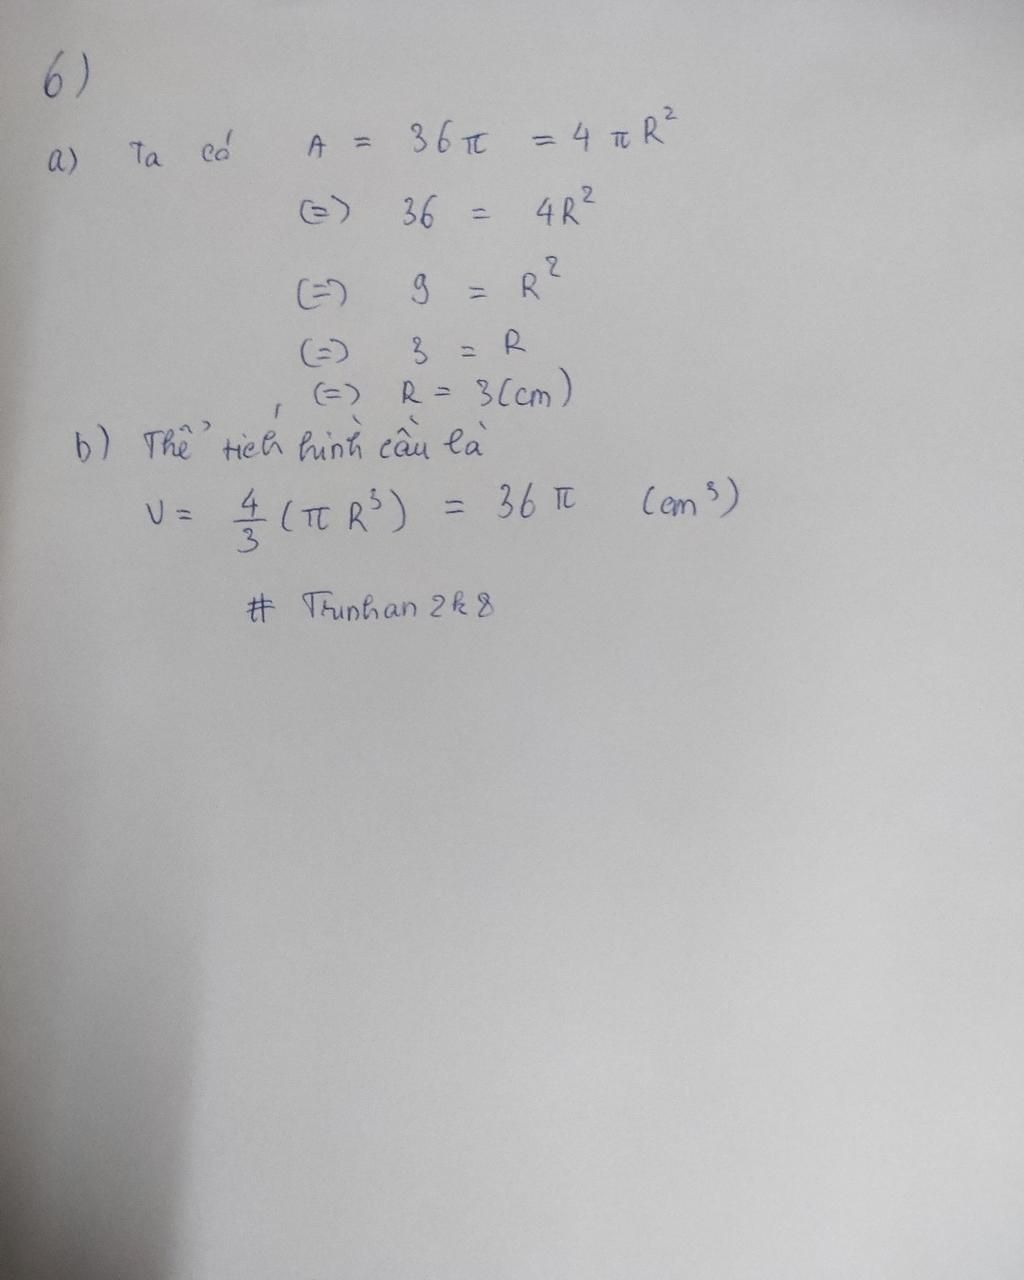 6)
a) Ta có A = 36π = 4πR²
(=) 36 = 4R²
(=) 9 = R²
(=) 3 = R
(=) R = 3(cm)
b) Thể tích hình cầu là
V = 4/3 (πR³) = 36π (cm³)
# Trunhan2k8